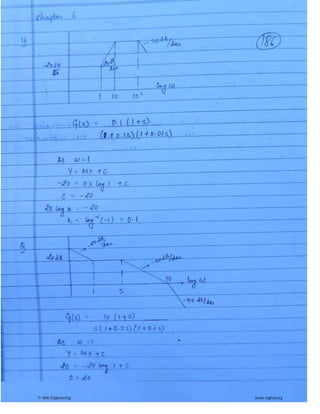 Chapter 6
186
16
-20 dB/dec
-20dB
20dB/dec
1 10 10²
log ω
G(s) = 0.1 (1+s)
(1+0.1s)(1+0.01s)
At ω=1
Y = Mx + C
-20 = 0x log 1 + C
C = -20
20 log k = -20
k = log⁻¹(-1) = 0.1
Q
-20dB/dec
20dB
-20dB/dec
10
log ω
1 5
-40 dB/dec
G(s) = 10 (1+s)
s(1+0.2s)(1+0.1s)
At ω=1
Y = Mx + C
20 = -20 log 1 + C
C = 20
© Wiki Engineering
www.raghul.org